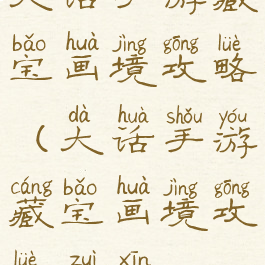 大话手游藏
bǎo huà jìng gōng lüè
宝画境攻略
dà huà shǒu yóu
（大话手游
cáng bǎo huà jìng gōng
藏宝画境攻
lüè zuì xīn